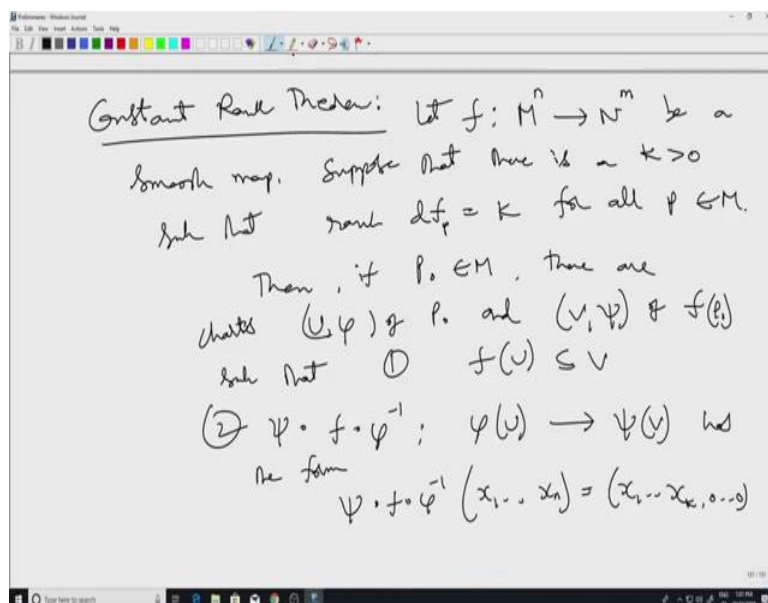 Preliminaries - Windows Journal
File Edit View Insert Actions Tools Help
B I
Constant Rank Theorem: Let f : Mⁿ → Nᵐ be a
smooth map. Suppose that there is a k > 0
such that rank df_p = k for all p ∈ M.
Then, if p₀ ∈ M, there are
charts (U, φ) of p₀ and (V, ψ) of f(p₀)
such that ① f(U) ⊆ V
② ψ∘f∘φ⁻¹ : φ(U) → ψ(V) has
the form
ψ∘f∘φ⁻¹ (x₁ … xₙ) = (x₁ … x_k, 0 … 0)
Type here to search
ENG 1:41 PM